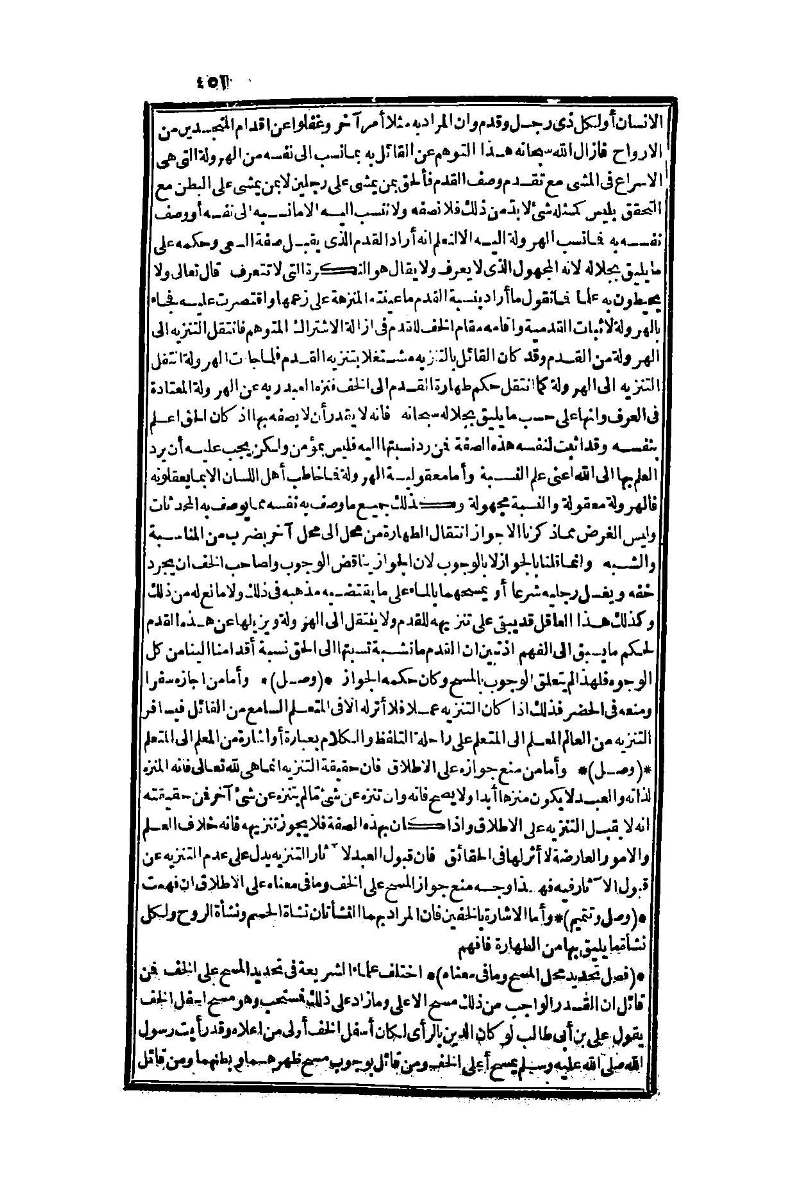 ٤٥٦
الانسان أولكل ذى رجل وقدم وان المراد به مثلا أمر آخر وغفلوا عن اقدام المتجسدين من
الارواح فازال الله سبحانه هذا التوهم عن القائل به بمانسب الى نفسه من الهرولة التى هى
الاسراع فى المشى مع تقدم وصف القدم فألحق بمن يمشى على رجلين لا بمن يمشى على البطن مع
التحقق بليس كمثله شئ لا بد من ذلك فلا نصفه ولا ننسب اليه الا مانسبه الى نفسه أو وصف
نفسه به فمانسب الهرولة اليه الا لتعلم انه أراد القدم الذى يقبل صفة السعى وحكمه على
ما يليق بجلاله لانه المجهول الذى لا يعرف ولا يقال هو النكرة التى لا تتعرف قال تعالى ولا
يحيطون به علما فمانقول ما أراد بنسبة القدم ماعينته المنزهة على زعمها واقتصرت عليه فجاء
بالهرولة لاثبات القدمية واقامه مقام الخف للقدم فى ازالة الاشتراك المتوهم فانتقل التنزيه الى
الهرولة من القدم وقد كان القائل بالتنزيه مشتغلا بتنزيه القدم فلماجاءت الهرولة انتقل
التنزيه الى الهرولة كما انتقل حكم طهارة القدم الى الخف فنزه العبد ربه عن الهرولة المعتادة
فى العرف وانها على حسب ما يليق بجلاله سبحانه فانه لا يقدر أن لا يصفه بها اذ كان الحق اعلم
بنفسه وقد اثبت لنفسه هذه الصفة فمن رد نسبتها اليه فليس بمؤمن ولكن يجب عليه أن يرد
العلم بها الى الله اعنى علم النسبة وأما معقولية الهرولة فماخاطب أهل اللسان الا بما يعقلونه
فالهرولة معقولة والنسبة مجهولة وكذلك جميع ما وصف به نفسه مما يوصف به المحدثات
وليس الغرض مماذكرنا الا جواز انتقال الطهارة من محل الى محل آخر بضرب من المناسبة
والشبه وانماقلنا بالجواز لا بالوجوب لان الجواز يناقض الوجوب ولصاحب الخف ان يجرد
خفه ويغسل رجليه شرعا أو يمسحهما بالماء على ما يقتضيه مذهبه فى ذلك ولا مانع له من ذلك
وكذلك هذا العاقل قد يبقى على تنزيهه للقدم ولا ينتقل الى الهرولة ويزيلها عن هذه القدم
لحكم ما يسبق الى الفهم اذ تبين ان القدم مانشبة نسبتها الى الحق نسبة أقدامنا الينا من كل
الوجوه فلهذا لم يتعلق الوجوب بالمسح وكان حكمه الجواز *(وصل)* وأما من اجازه سفرا
ومنعه فى الحضر فذلك اذا كان التنزيه عملا فلا أثر له الا فى المتعلم السامع من القائل فيسافر
التنزيه من العالم المعلم الى المتعلم على راحلة التلفظ والكلام بعبارة أو اشارة من المعلم الى المتعلم
*(وصل)* وأما من منع جوازه على الاطلاق فان حقيقة التنزيه انماهى لله تعالى فانه المنزه
لذاته والعبد لا يكون منزها أبدا ولا يصح فانه وان تنزه عن شئ مّا لم يتنزه عن شئ آخر فمن حقيقته
انه لا يقبل التنزيه على الاطلاق واذا كان بهذه الصفة فلا يجوز تنزيهه فانه خلاف العلم
والامور العارضة لا أثر لها فى الحقائق فان قبول العبد لآثار التنزيه يدل على عدم التنزيه عن
قبول الآثار فيه فهذا وجه منع جواز المسح على الخف وما فى معناه على الاطلاق ان فهمت
*(وصل وتتميم)* وأما الاشارة بالخفين فان المراد بهما النشأتان نشأة الجسم ونشأة الروح ولكل
نشأة ما يليق بها من الطهارة فافهم
*(فصل تحديد محل المسح وما فى معناه)* اختلف علماء الشريعة فى تحديد المسح على الخف فمن
قائل ان القدر الواجب من ذلك مسح الاعلى وما زاد على ذلك فستحب وهو مسح اسفل الخف
يقول على بن أبى طالب لو كان الدين بالرأى لكان أسفل الخف أولى من اعلاه وقد رأيت رسول
الله صلى الله عليه وسلم يمسح أعلى الخف ومن قائل بوجوب مسح ظهرهما وبطنهما ومن قائل